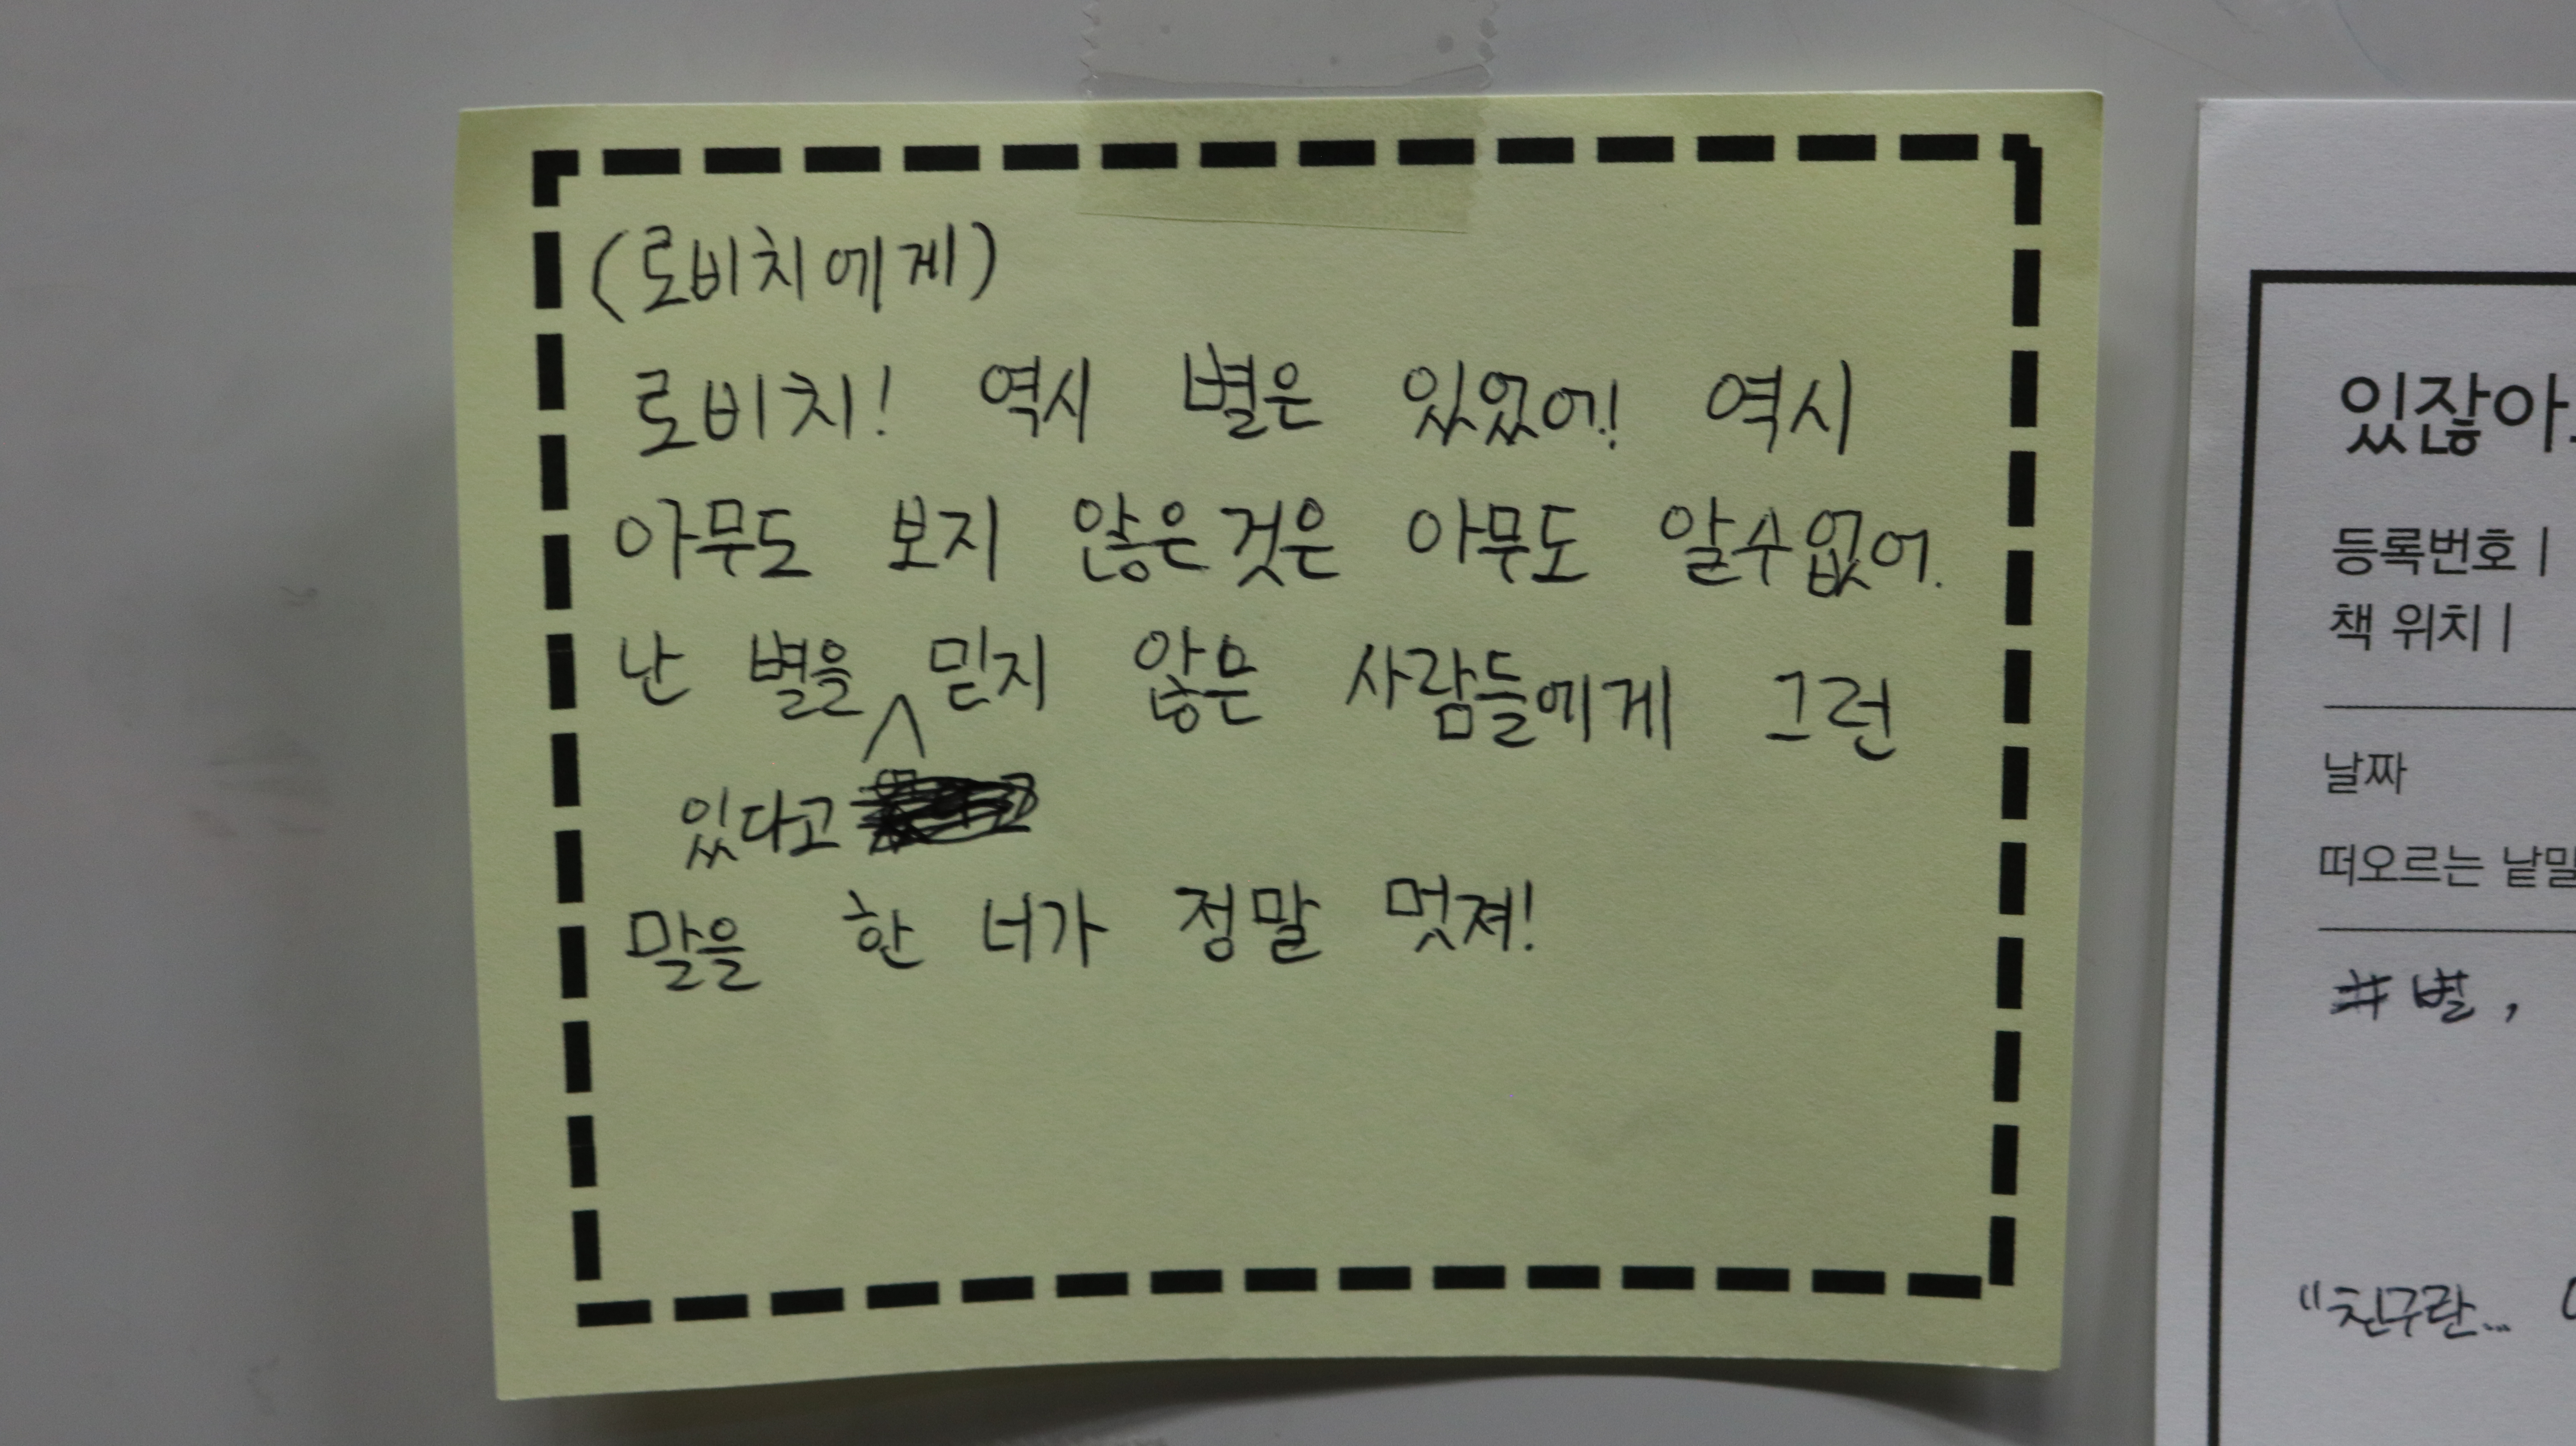 (로비치에게)
로비치! 역시 별은 있었어! 역시
아무도 보지 않은것은 아무도 알수없어.
난 별을 믿지 않은 사람들에게 그런
있다고
말을 한 너가 정말 멋져!
있잖아
등록번호 |
책 위치 |
날짜
떠오르는 낱말
#별,
"친구란...